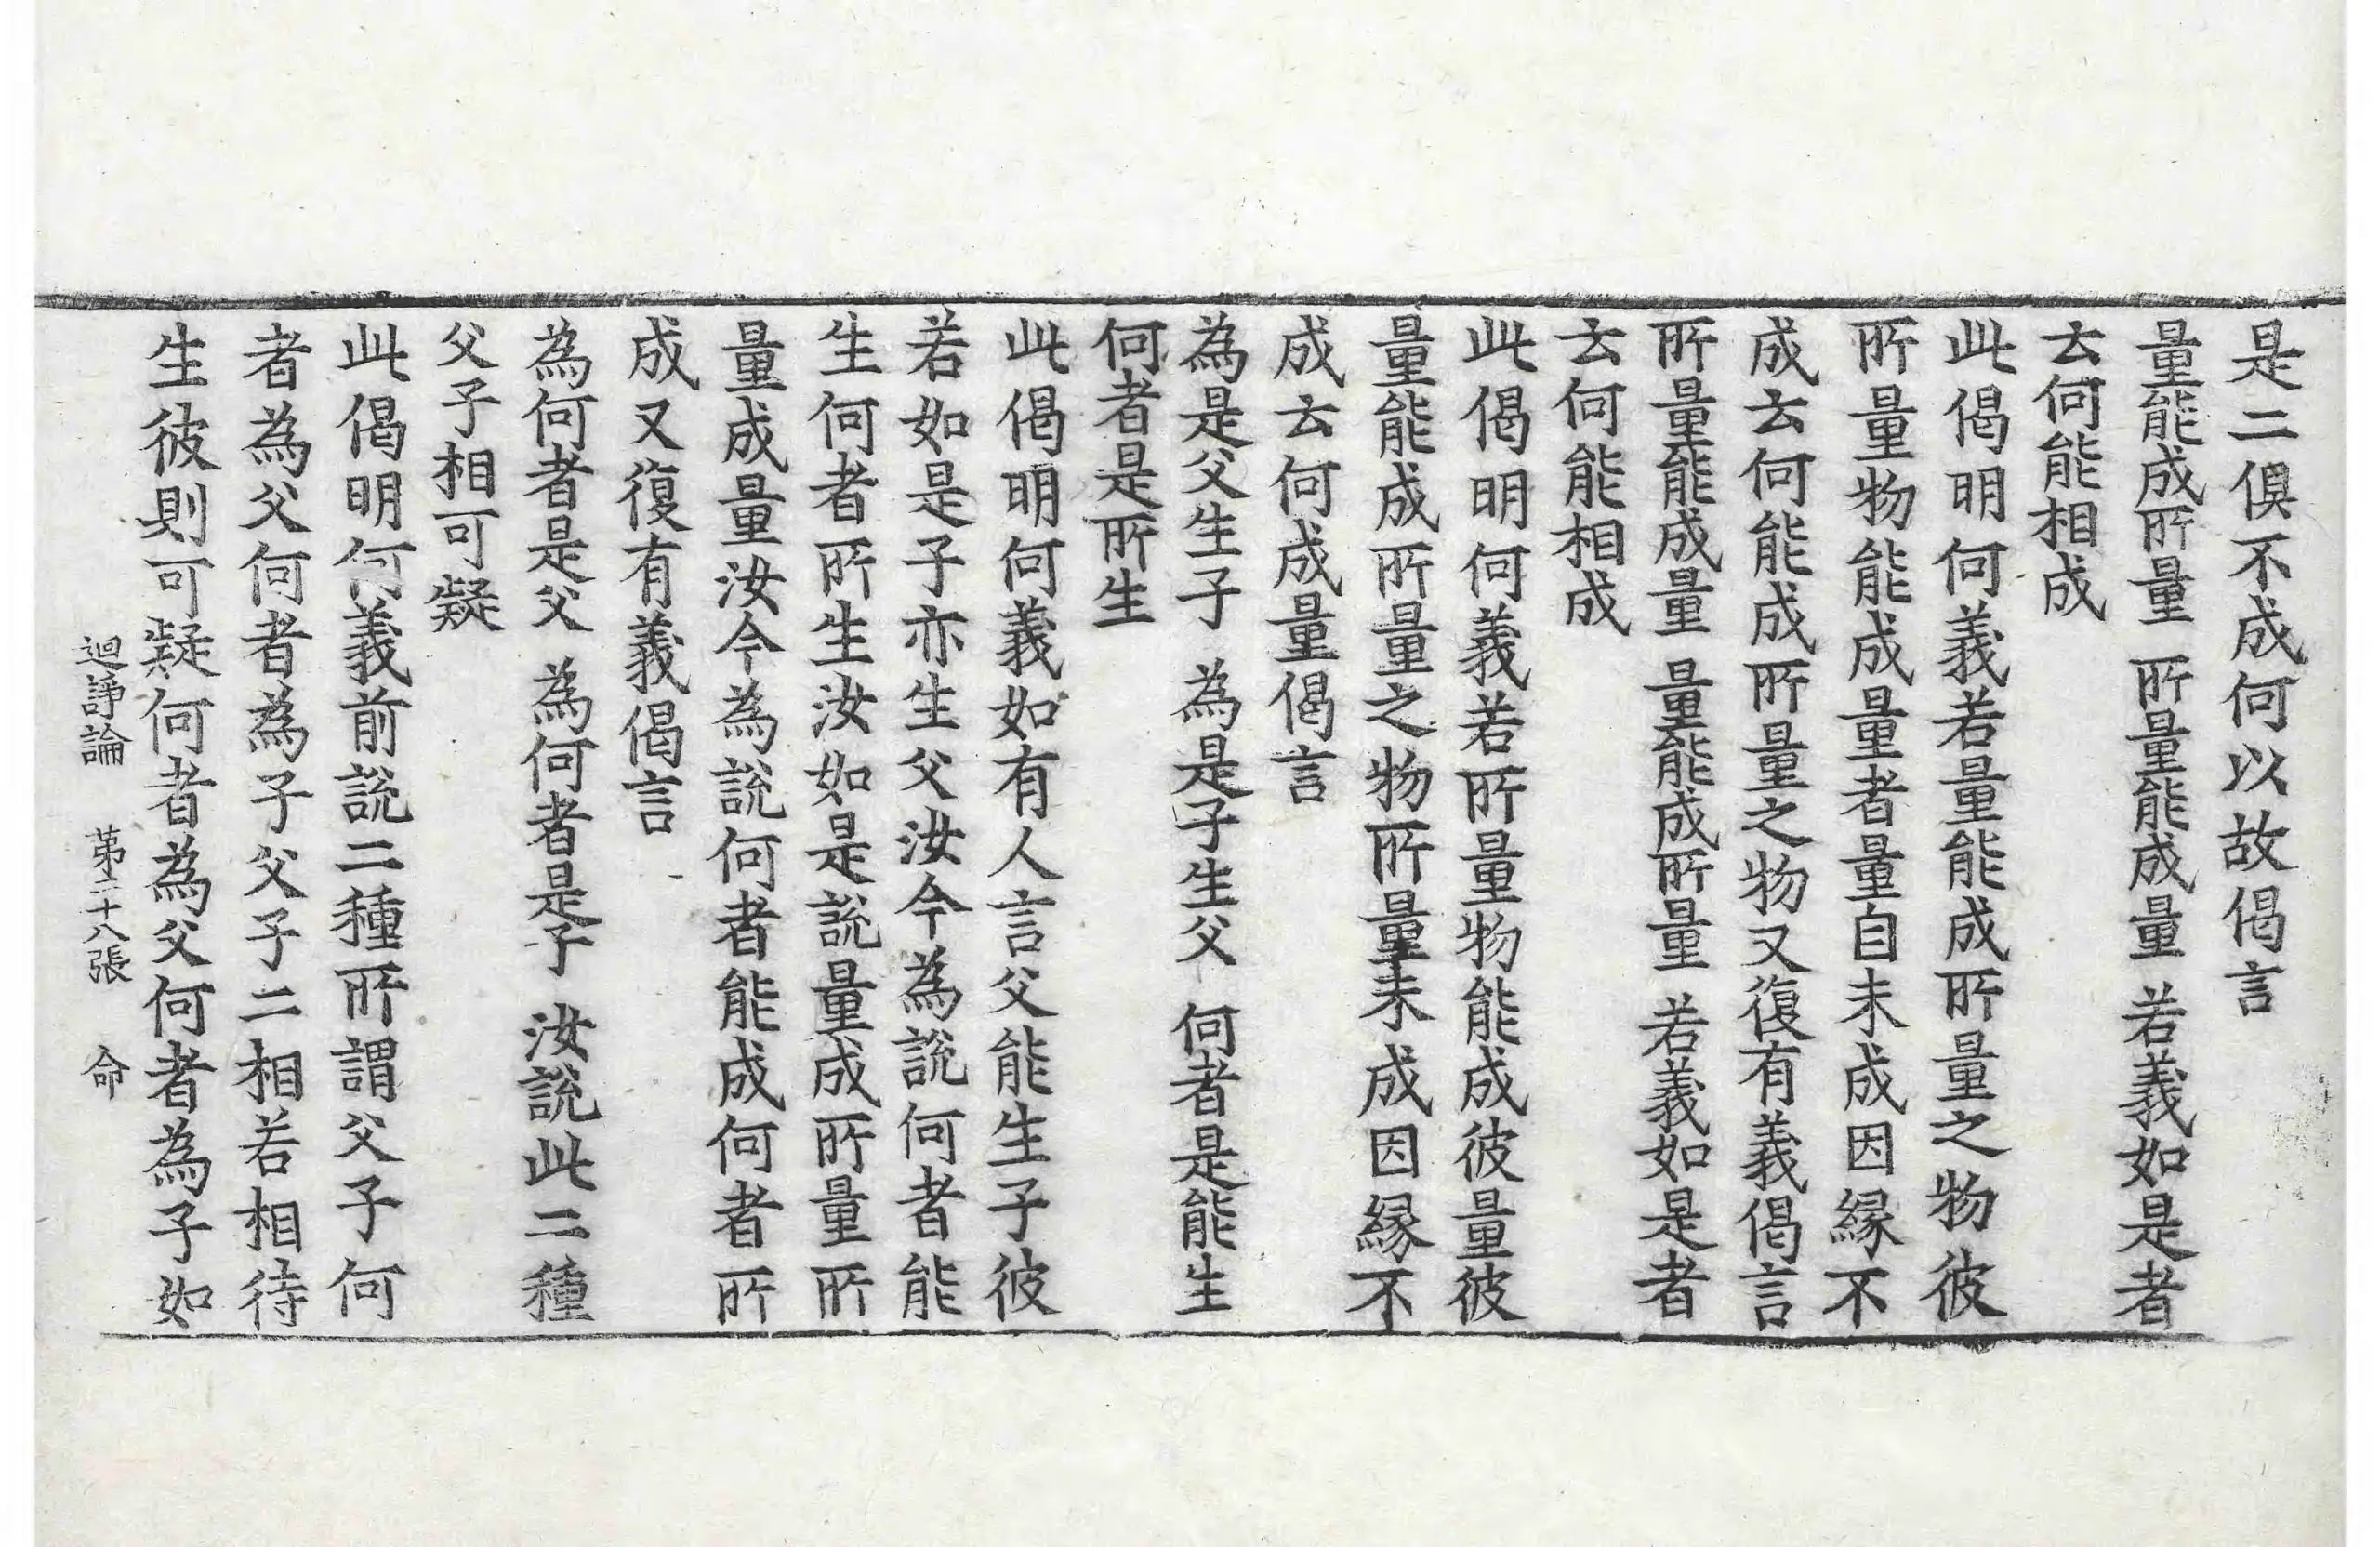 是二俱不成何以故偈言
量能成所量　所量能成量　若義如是者
云何能相成
此偈明何義若量能成所量之物彼
所量物能成量者量自未成因緣不
成云何能成所量之物又復有義偈言
所量能成量　量能成所量　若義如是者
云何能相成
此偈明何義若所量物能成彼量彼
量能成所量之物所量未成因緣不
成云何成量偈言
為是父生子　為是子生父　何者是能生
何者是所生
此偈明何義如有人言父能生子彼
若如是子亦生父汝今為說何者能
生何者所生汝如是說量成所量所
量成量汝今為說何者能成何者所
成又復有義偈言
為何者是父　為何者是子　汝說此二種
父子相可疑
此偈明何義前說二種所謂父子何
者為父何者為子父子二相若相待
生彼則可疑何者為父何者為子如
迴諍論　第二十八張　命